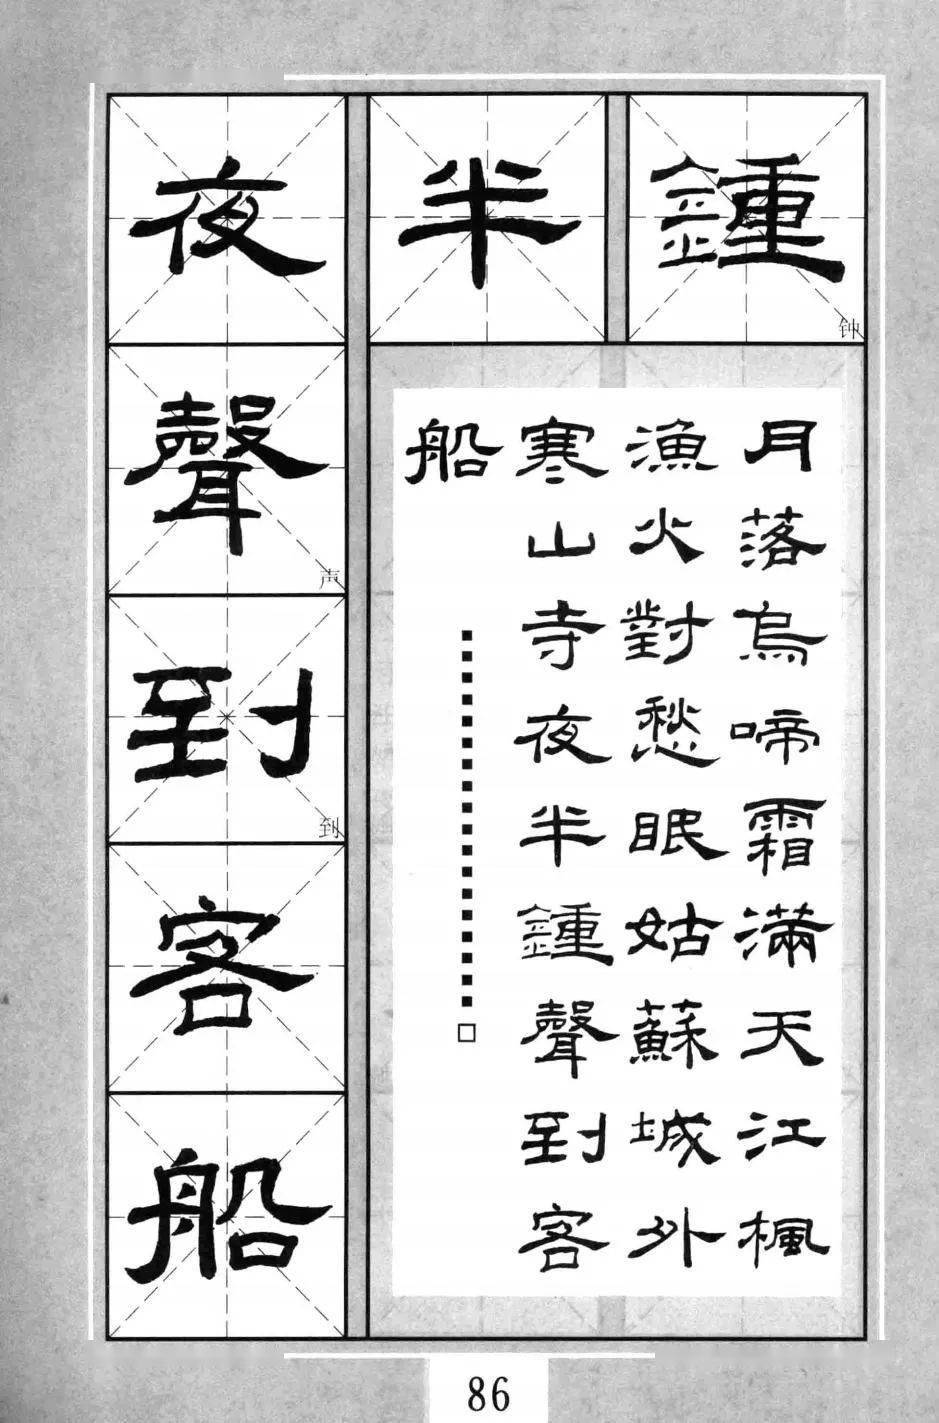 夜半鍾
钟
聲
声
到
到
客
船
月落烏啼霜滿天江楓
漁火對愁眠姑蘇城外
寒山寺夜半鍾聲到客
船
86